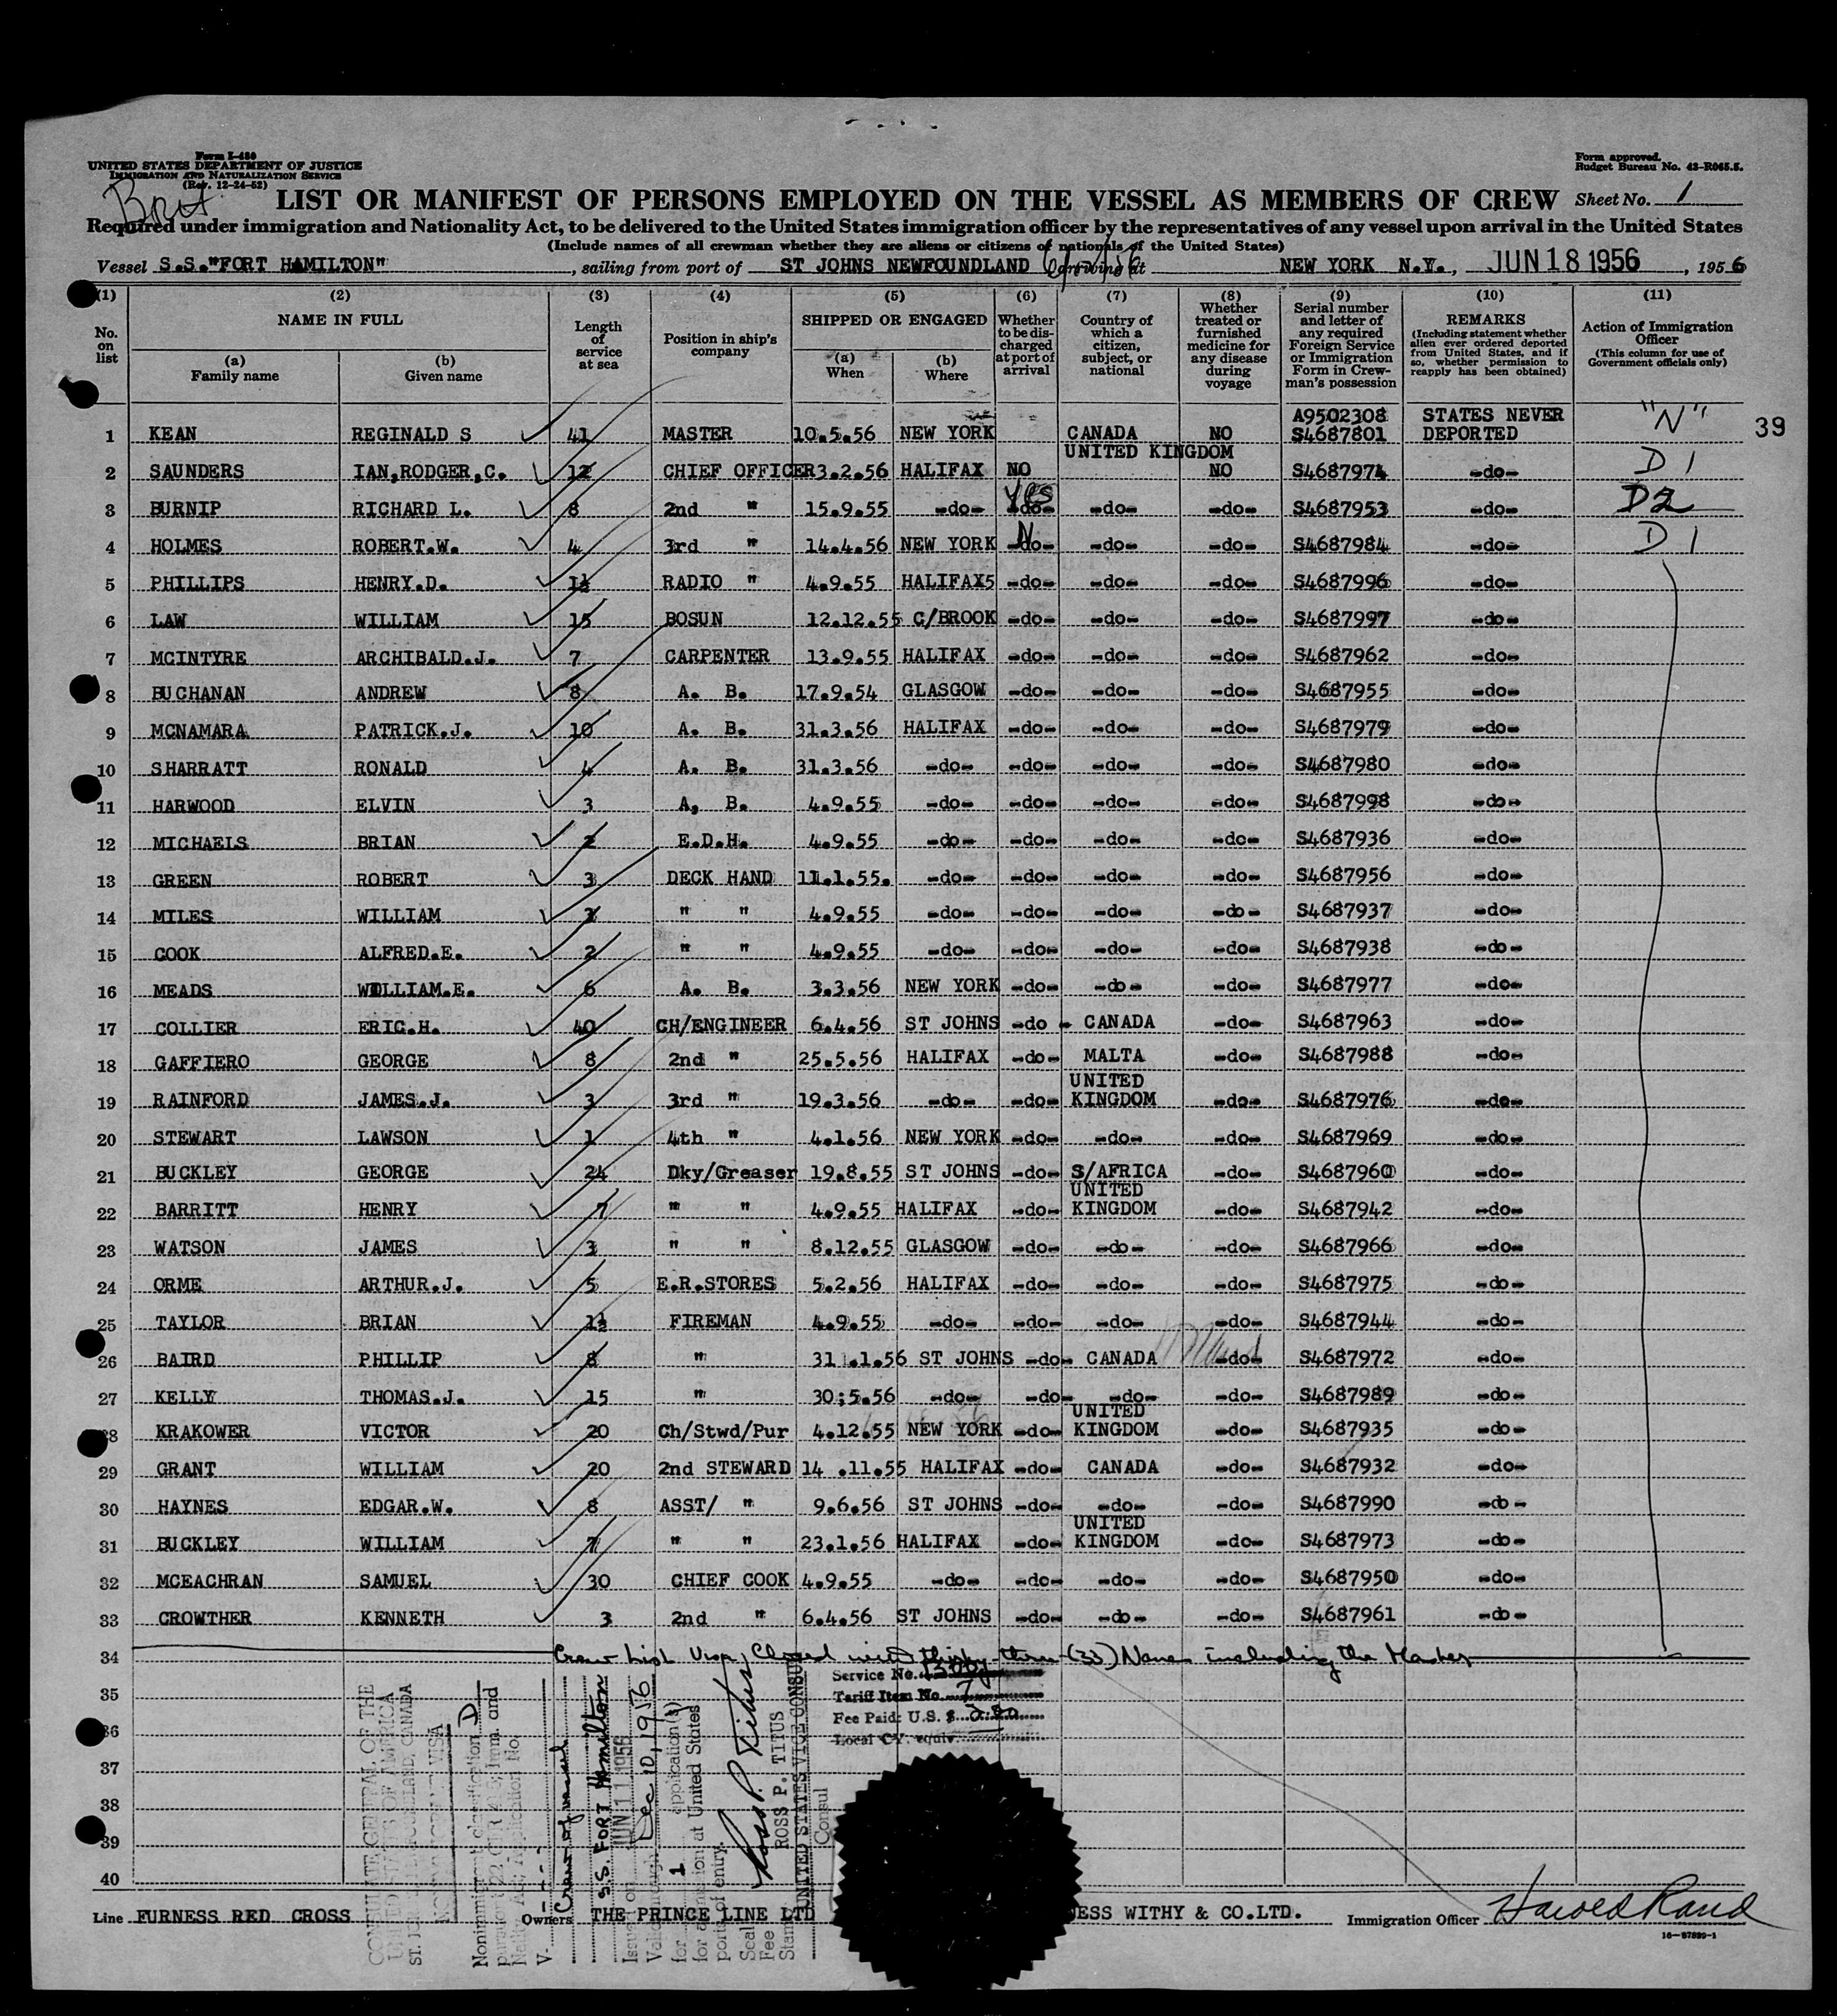 Form I-480
UNITED STATES DEPARTMENT OF JUSTICE
IMMIGRATION AND NATURALIZATION SERVICE
(Rev. 12-24-52)
Form approved.
Budget Bureau No. 43-R065.5.
Brit
LIST OR MANIFEST OF PERSONS EMPLOYED ON THE VESSEL AS MEMBERS OF CREW Sheet No. 1
Required under immigration and Nationality Act, to be delivered to the United States immigration officer by the representatives of any vessel upon arrival in the United States
(Include names of all crewman whether they are aliens or citizens of nationals of the United States)
Vessel S.S."FORT HAMILTON", sailing from port of ST JOHNS NEWFOUNDLAND arriving at NEW YORK N.Y., JUN 18 1956, 1956
(1) (2) (3) (4) (5) (6) (7) (8) (9) (10) (11)
No. on list
NAME IN FULL
(a) Family name
(b) Given name
Length of service at sea
Position in ship's company
SHIPPED OR ENGAGED
(a) When
(b) Where
Whether to be discharged at port of arrival
Country of which a citizen, subject, or national
Whether treated or furnished medicine for any disease during voyage
Serial number and letter of any required Foreign Service or Immigration Form in Crewman's possession
REMARKS
(Including statement whether alien ever ordered deported from United States, and if so, whether permission to reapply has been obtained)
Action of Immigration Officer
(This column for use of Government officials only)
A9502308 STATES NEVER
1 KEAN REGINALD S 41 MASTER 10.5.56 NEW YORK CANADA NO S4687801 DEPORTED "N" 39
UNITED KINGDOM
2 SAUNDERS IAN,RODGER,C. 12 CHIEF OFFICER 3.2.56 HALIFAX NO NO S4687974 -do- D 1
Yes
3 BURNIP RICHARD L. 8 2nd " 15.9.55 -do- -do- -do- -do- S4687953 -do- D2
4 HOLMES ROBERT.W. 4 3rd " 14.4.56 NEW YORK N -do- -do- -do- S4687984 -do- D 1
5 PHILLIPS HENRY.D. 1½ RADIO " 4.9.55 HALIFAX5 -do- -do- -do- S4687996 -do-
6 LAW WILLIAM 15 BOSUN 12.12.55 C/BROOK -do- -do- -do- S4687997 -do-
7 MCINTYRE ARCHIBALD.J. 7 CARPENTER 13.9.55 HALIFAX -do- -do- -do- S4687962 -do-
8 BUCHANAN ANDREW 8 A. B. 17.9.54 GLASGOW -do- -do- -do- S4687955 -do-
9 MCNAMARA PATRICK.J. 10 A. B. 31.3.56 HALIFAX -do- -do- -do- S4687979 -do-
10 SHARRATT RONALD 4 A. B. 31.3.56 -do- -do- -do- -do- S4687980 -do-
11 HARWOOD ELVIN 3 A, B. 4.9.55 -do- -do- -do- -do- S4687998 -do-
12 MICHAELS BRIAN 2 E.D.H. 4.9.55 -do- -do- -do- -do- S4687936 -do-
13 GREEN ROBERT 3 DECK HAND 11.1.55. -do- -do- -do- -do- S4687956 -do-
14 MILES WILLIAM " " 4.9.55 -do- -do- -do- -do- S4687937 -do-
15 COOK ALFRED.E. 2 " " 4.9.55 -do- -do- -do- -do- S4687938 -do-
16 MEADS WILLIAM.E. 6 A. B. 3.3.56 NEW YORK -do- -do- -do- S4687977 -do-
17 COLLIER ERIC.H. 40 CH/ENGINEER 6.4.56 ST JOHNS -do- CANADA -do- S4687963 -do-
18 GAFFIERO GEORGE 8 2nd " 25.5.56 HALIFAX -do- MALTA -do- S4687988 -do-
UNITED
19 RAINFORD JAMES.J. 3 3rd " 19.3.56 -do- -do- KINGDOM -do- S4687976 -do-
20 STEWART LAWSON 1 4th " 4.1.56 NEW YORK -do- -do- -do- S4687969 -do-
21 BUCKLEY GEORGE 24 Dky/Greaser 19.8.55 ST JOHNS -do- S/AFRICA -do- S4687960 -do-
UNITED
22 BARRITT HENRY 7 " " 4.9.55 HALIFAX -do- KINGDOM -do- S4687942 -do-
23 WATSON JAMES 3 " " 8.12.55 GLASGOW -do- -do- -do- S4687966 -do-
24 ORME ARTHUR.J. 5 E.R.STORES 5.2.56 HALIFAX -do- -do- -do- S4687975 -do-
25 TAYLOR BRIAN 1½ FIREMAN 4.9.55 -do- -do- -do- -do- S4687944 -do-
26 BAIRD PHILLIP 8 " 31.1.56 ST JOHNS -do- CANADA -do- S4687972 -do-
27 KELLY THOMAS.J. 15 " 30;5.56 -do- -do- -do- -do- S4687989 -do-
UNITED
28 KRAKOWER VICTOR 20 Ch/Stwd/Pur 4.12.55 NEW YORK -do- KINGDOM -do- S4687935 -do-
29 GRANT WILLIAM 20 2nd STEWARD 14 .11.55 HALIFAX -do- CANADA -do- S4687932 -do-
30 HAYNES EDGAR.W. 8 ASST/ " 9.6.56 ST JOHNS -do- -do- -do- S4687990 -do-
UNITED
31 BUCKLEY WILLIAM 7 " " 23.1.56 HALIFAX -do- KINGDOM -do- S4687973 -do-
32 MCEACHRAN SAMUEL 30 CHIEF COOK 4.9.55 -do- -do- -do- -do- S4687950 -do-
33 CROWTHER KENNETH 3 2nd " 6.4.56 ST JOHNS -do- -do- -do- S4687961 -do-
34 Crew List Visa, Closed with thirty-three (33) Names including the Master
35
36
37
38
39
40
Service No.
Tariff Item No. 7
Fee Paid: U.S. $
Local CY. equiv.
CONSULATE GENERAL OF THE
UNITED STATES OF AMERICA
ST. JOHN'S, NEWFOUNDLAND, CANADA
NONIMMIGRANT VISA
Nonimmigrant classification D
V-
Crew of vessel
S.S. FORT Hamilton
Issued on JUN 11 1956
Valid through Dec 10, 1956
for 1 application(s)
for admission at United States
ports of entry.
Seal
Fee
Stamp
Ross P. Titus
ROSS P. TITUS
UNITED STATES VICE CONSUL
Consul
Line FURNESS RED CROSS Owners THE PRINCE LINE LTD ESS WITHY & CO.LTD. Immigration Officer Harold Rand
16-67889-1